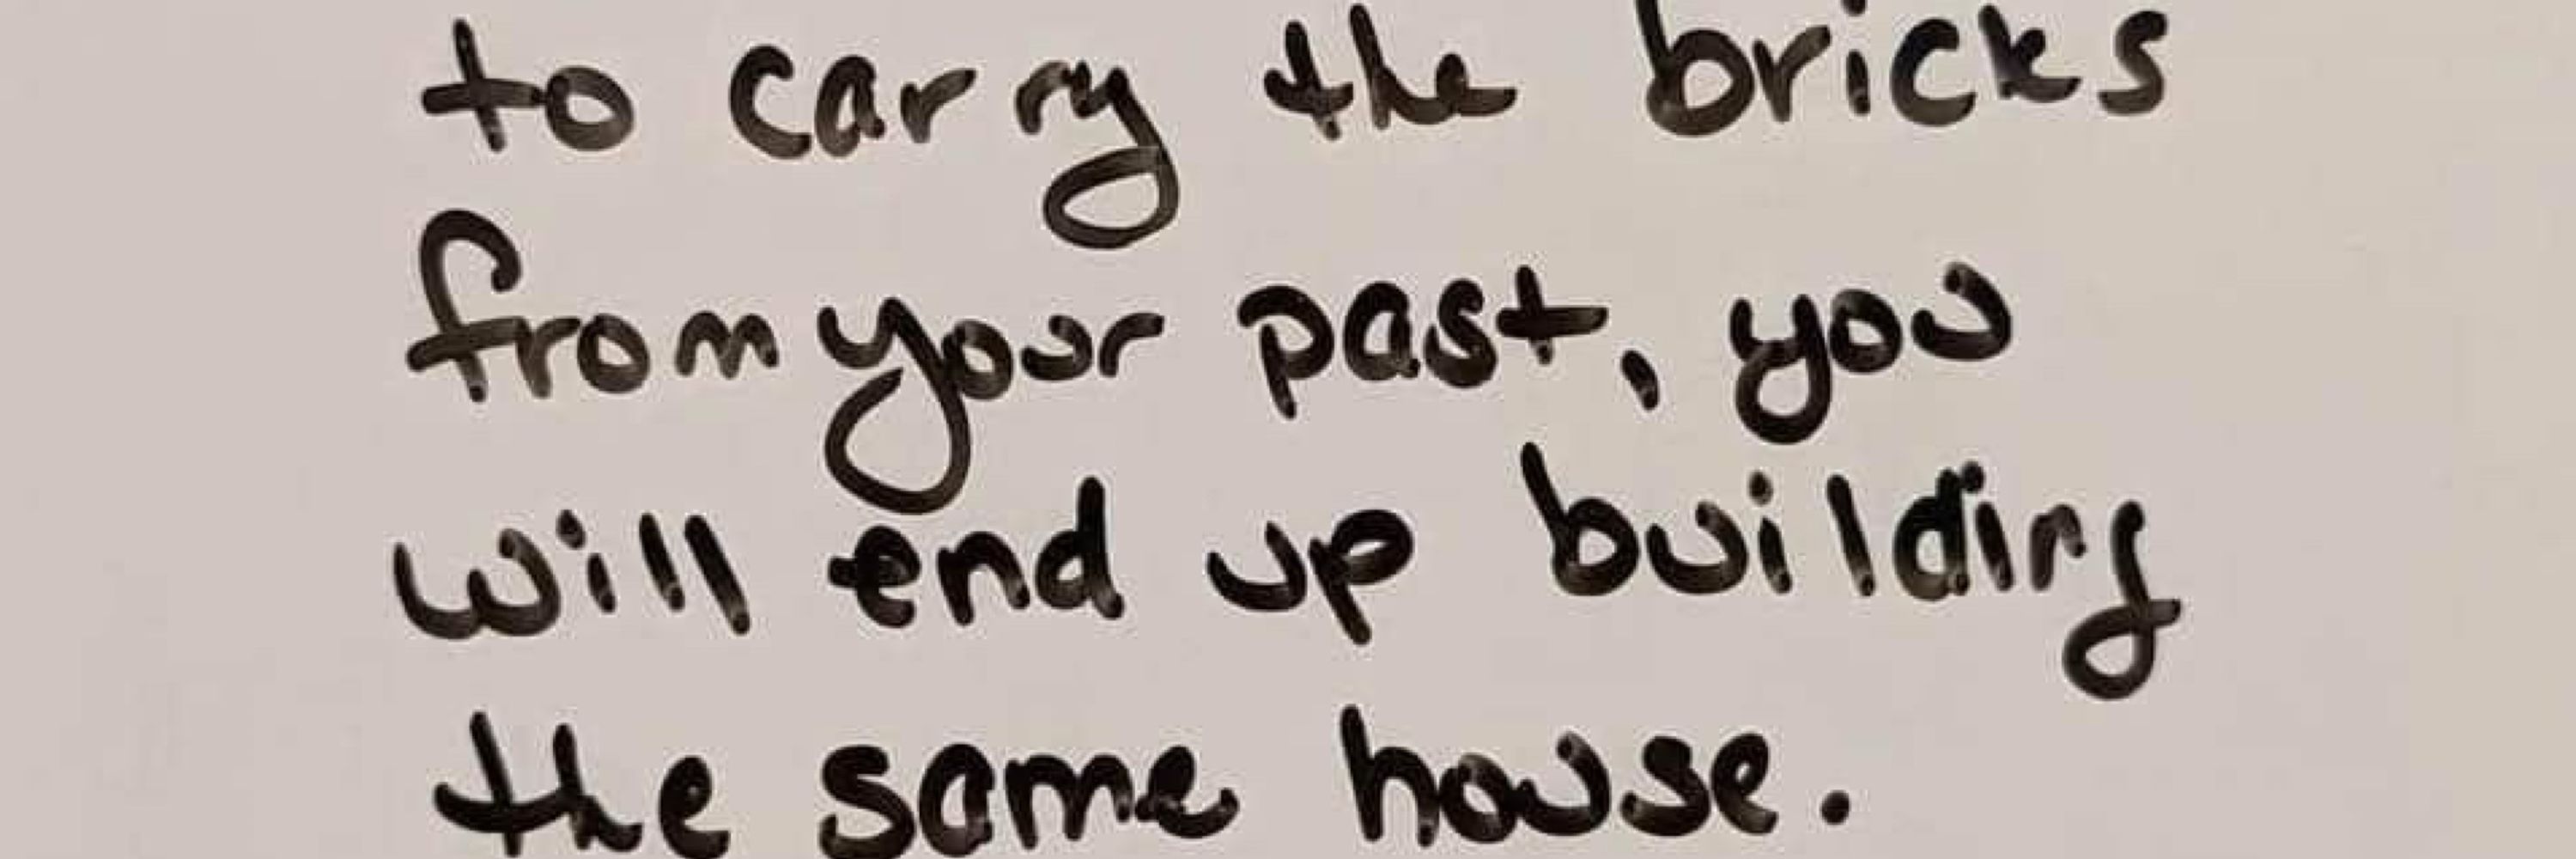 to carry the bricks
from your past, you
will end up building
the same house.